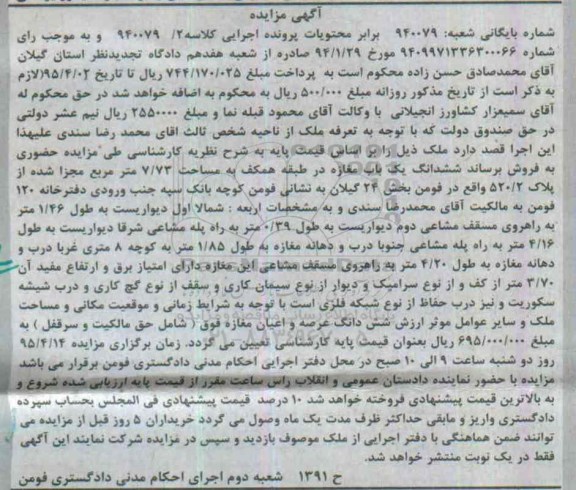 آگهی مزایده
شماره بایگانی شعبه: ۹۴۰۰۷۹ برابر محتویات پرونده اجرایی کلاسه۲/ ۹۴۰۰۷۹ و به موجب رای
شماره ۹۴۰۹۹۷۱۳۳۶۳۰۰۰۶۶ مورخ ۹۴/۱/۲۹ صادره از شعبه هفدهم دادگاه تجدیدنظر استان گیلان
آقای محمدصادق حسن زاده محکوم است به پرداخت مبلغ ۷۴۴/۱۷۰/۰۲۵ ریال تا تاریخ ۹۵/۴/۰۲(لازم
به ذکر است از تاریخ مذکور روزانه مبلغ ۵۰۰/۰۰۰ ریال به محکوم به اضافه خواهد شد در حق محکوم له
آقای سمیعزار کشاورز انجیلانی با وکالت آقای محمود قبله نما و مبلغ ۲۵۵۰۰۰۰ ریال نیم عشر دولتی
در حق صندوق دولت که با توجه به تعرفه ملک از ناحیه شخص ثالث اقای محمد رضا سندی علیهذا
این اجرا قصد دارد ملک ذیل را بر اساس قیمت پایه به شرح نظریه کارشناسی طی مزایده حضوری
به فروش برساند ششدانگ یک باب مغازه در طبقه همکف به مساحت ۷/۷۳ متر مربع مجزا شده از
پلاک ۵۲۰/۲ واقع در فومن بخش ۲۴ گیلان به نشانی فومن کوچه بانک سپه جنب ورودی دفترخانه ۱۲۰
فومن به مالکیت آقای محمدرضا سندی و به مشخصات اربعه : شمالا اول دیواریست به طول ۱/۴۶ متر
به راهروی مسقف مشاعی دوم دیواریست به طول ۰/۳۹ متر به راه پله مشاعی شرقا دیواریست به طول
۴/۱۶ متر به راه پله مشاعی جنوبا درب و دهانه مغازه به طول ۱/۸۵ متر به کوچه ۸ متری غربا درب و
دهانه مغازه به طول ۴/۲۰ متر به راهروی مسقف مشاعی این مغازه دارای امتیاز برق و ارتفاع مفید آن
۳/۷۰ متر از کف و از نوع سرامیک و دیوار از نوع سیمان کاری و سقف از نوع گچ کاری و درب شیشه
سکوریت و نیز درب حفاظ از نوع شبکه فلزی است با توجه به شرایط زمانی و موقعیت مکانی و مساحت
ملک و سایر عوامل موثر ارزش شش دانگ عرصه و اعیان مغازه فوق ( شامل حق مالکیت و سرقفل ) به
مبلغ ۶۹۵/۰۰۰/۰۰۰ ریال بعنوان قیمت پایه کارشناسی تعیین می گردد. زمان برگزاری مزایده ۹۵/۴/۱۴
روز دو شنبه ساعت ۹ الی ۱۰ صبح در محل دفتر اجرایی احکام مدنی دادگستری فومن برقرار می باشد
مزایده با حضور نماینده دادستان عمومی و انقلاب راس ساعت مقرر از قیمت پایه ارزیابی شده شروع و
به بالاترین قیمت پیشنهادی فروخته خواهد شد ۱۰ درصد قیمت پیشنهادی فی المجلس بحساب سپرده
دادگستری واریز و مابقی حداکثر ظرف مدت یک ماه وصول می گردد خریداران ۵ روز قبل از مزایده می
توانند ضمن هماهنگی با دفتر اجرایی از ملک موصوف بازدید و سپس در مزایده شرکت نمایند این آگهی
فقط در یک نوبت منتشر خواهد شد.
ح ۱۳۹۱ شعبه دوم اجرای احکام مدنی دادگستری فومن